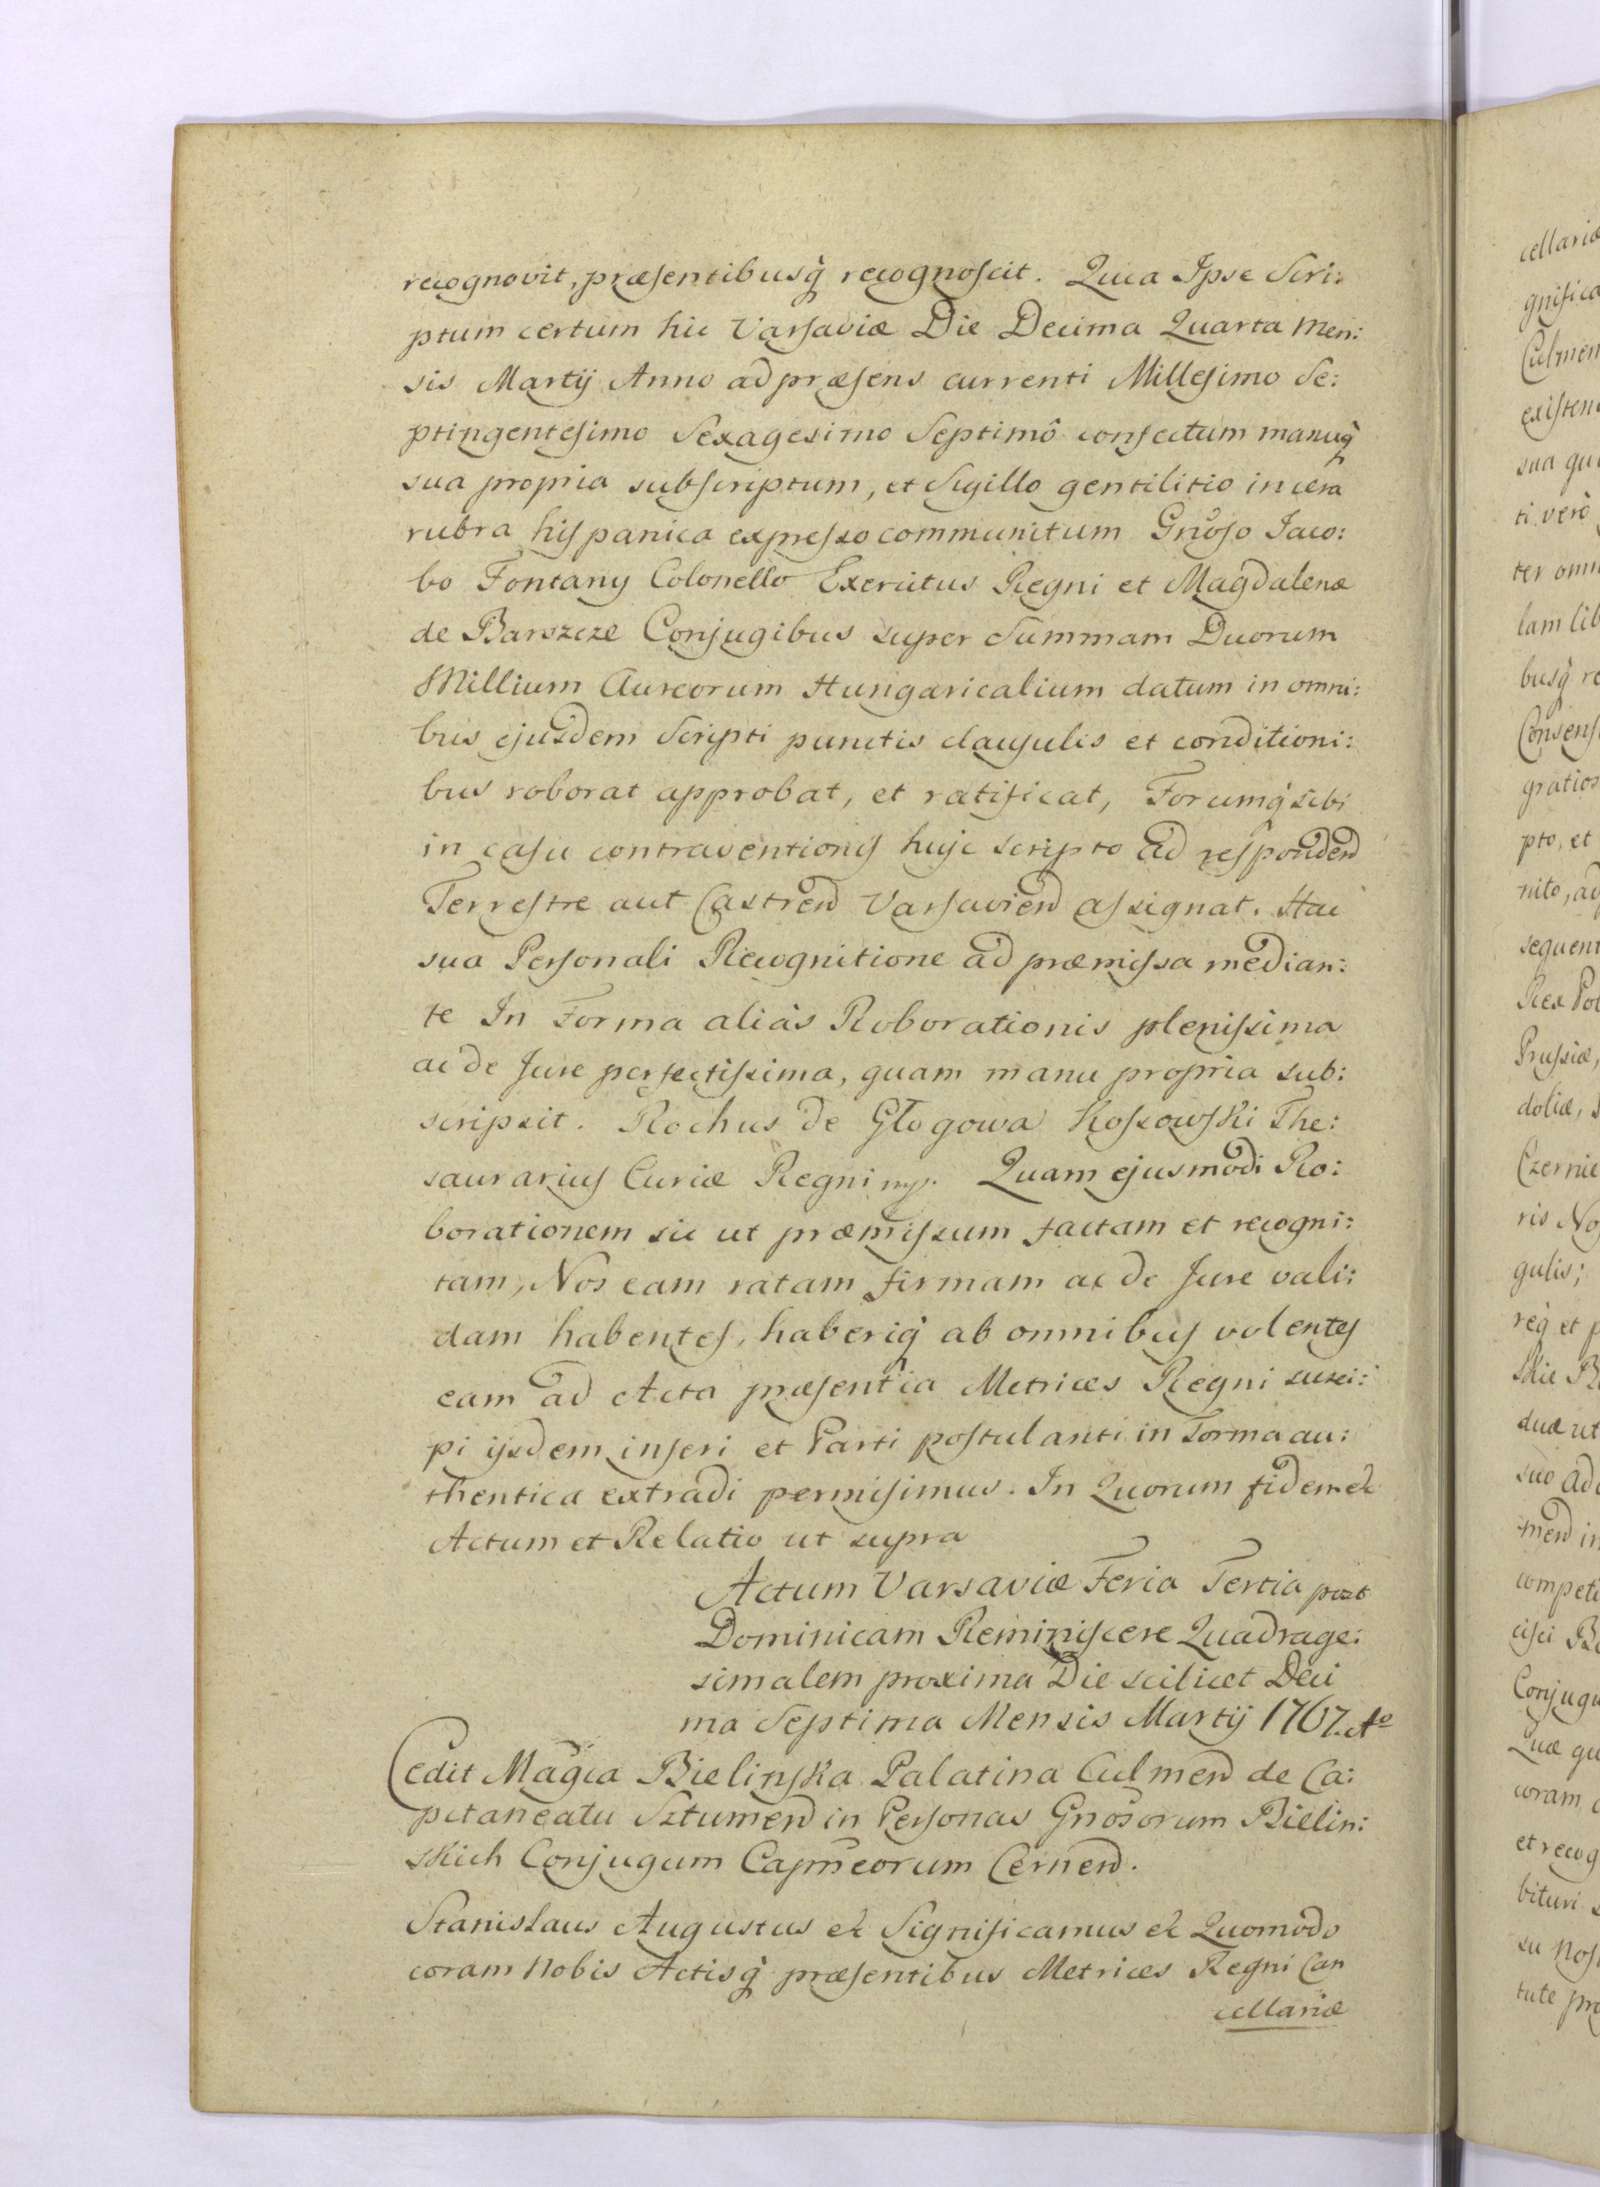 recognovit, præsentibusq̀ recognoscit. Quia Ipse Scri:
ptum certum hic Varsaviæ Die Decima Quarta Men:
sis Martij Anno ad præsens currenti Millesimo Se:
ptingentesimo Sexagesimo Septimô confectum manuq̀
sua propria subscriptum, et Sigillo gentilitio in cera
rubra hispanica expresso communitum Gnõso Jaco:
bo Fontany Colonello Exercitus Regni et Magdalenæ
de Barszcze Conjugibus super Summam Duorum
Millium Aureorum Hungaricalium datum in omni:
bus ejusdem Scripti punctis clausulis et conditioni:
bus roborat approbat, et ratificat, Forumq̀ sibi
in casu contraventionis huic scripto ad responden̄
Terrestre aut Castren̄ Varsavien̄ assignat. Hac
sua Personali Recognitione ad præmissa median:
te In Forma aliàs Roborationis plenissima
ac de Jure perfectissima, quam manu propria sub:
scripsit. Rochus de Głogowa Kossowski The:
saurarius Curiæ Regni mp. Quam ejusmodi Ro:
borationem sic ut præmissum factam et recogni:
tam, Nos eam ratam firmam ac de Jure vali:
dam habentes, haberiq̀ ab omnibus volentes
eam ad Acta præsentia Metrices Regni susci:
pi ijsdem inseri et Parti postulanti in Forma au:
thentica extradi permisimus. In Quorum fidem et
Actum et Relatio ut supra
Actum Varsaviæ Feria Tertia post
Dominicam Reminiscere Quadrage:
simalem proxima Die scilicet Deci
ma Septima Mensis Martij 1767. Aº
Cedit Magca Bielinska Palatina Culmen̄ de Ca:
pitaneatu Sztumen̄ in Personas Gnõsorum Bielin:
skich Conjugum Capneorum Cernen̄.
Stanislaus Augustus et Significamus et Quomodo
coram Nobis Actisq̀ præsentibus Metrices Regni Can
cellariæ
cellariæ
gnifica
Culmen
existen
sua
ti verò
ter omn
lam lib
busq̀ re
Consens
gratios
pto, et
nito, ad
sequent
Rex Pol
Prussiæ,
doliæ,
Czernie
ris No
gulis;
req̀ et p
skie B
duæ ut
suo ad
men̄ in
competi
cisci B
Conjugu
Quæ qu
coram
et recog
bituri
su Nos
tute pro